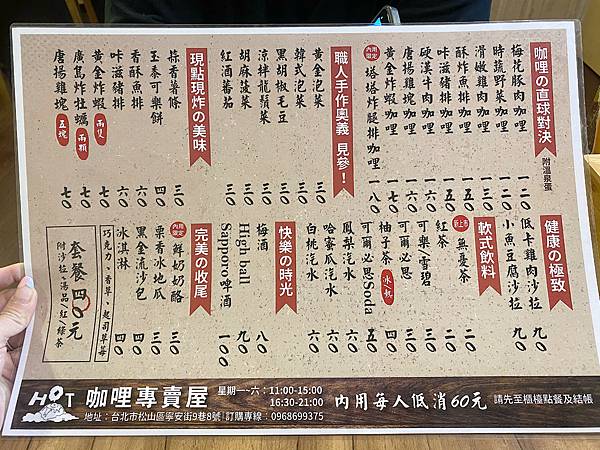 咖哩の直球對決 附溫泉蛋
梅花豚肉咖哩 一二〇
時蔬野菜咖哩 一二〇
滑嫩雞肉咖哩 一三〇
酥炸魚排咖哩 一五〇
咔滋豬排咖哩 一五〇
硬漢牛肉咖哩 一六〇
唐揚雞塊咖哩 一六〇
黃金炸蝦咖哩 一七〇
內用限定 塔塔炸腿排咖哩 一八〇
職人手作奧義 見參！
黃金泡菜 三〇
韓式泡菜 三〇
黑胡椒毛豆 三〇
涼拌龍鬚菜 三〇
胡麻菠菜 三〇
紅酒蕃茄 三〇
現點現炸の美味
蒜香薯條 三〇
玉黍可樂餅 四〇
香酥魚排 六〇
咔滋豬排 六〇
黃金炸蝦 兩隻 七〇
廣島炸牡蠣 兩顆 七〇
唐揚雞塊 五塊 七〇
健康の極致
低卡雞肉沙拉 九〇
小魚豆腐沙拉 九〇
軟式飲料
新上市 無憂茶 二〇
紅茶 二〇
可樂/雪碧 三〇
可爾必思 三〇
柚子茶 冰/熱 四〇
可爾必思Soda 五〇
鳳梨汽水 六〇
哈蜜瓜汽水 六〇
白桃汽水 六〇
快樂の時光
梅酒 八〇
High ball 九〇
Sapporo啤酒 一〇〇
完美の收尾
內用限定 鮮奶奶酪 三〇
栗香冰地瓜 三〇
黑金流沙包 四〇
冰淇淋 四〇
巧克力、香草、起司草莓
套餐 四〇元
附沙拉、湯品/紅/綠茶
HOT 咖哩專賣屋
星期一~六：11:00-15:00
16:30-21:00
地址：台北市松山區寧安街9巷8號 訂購專線：0968699375
內用每人低消60元 請先至櫃檯點餐及結帳